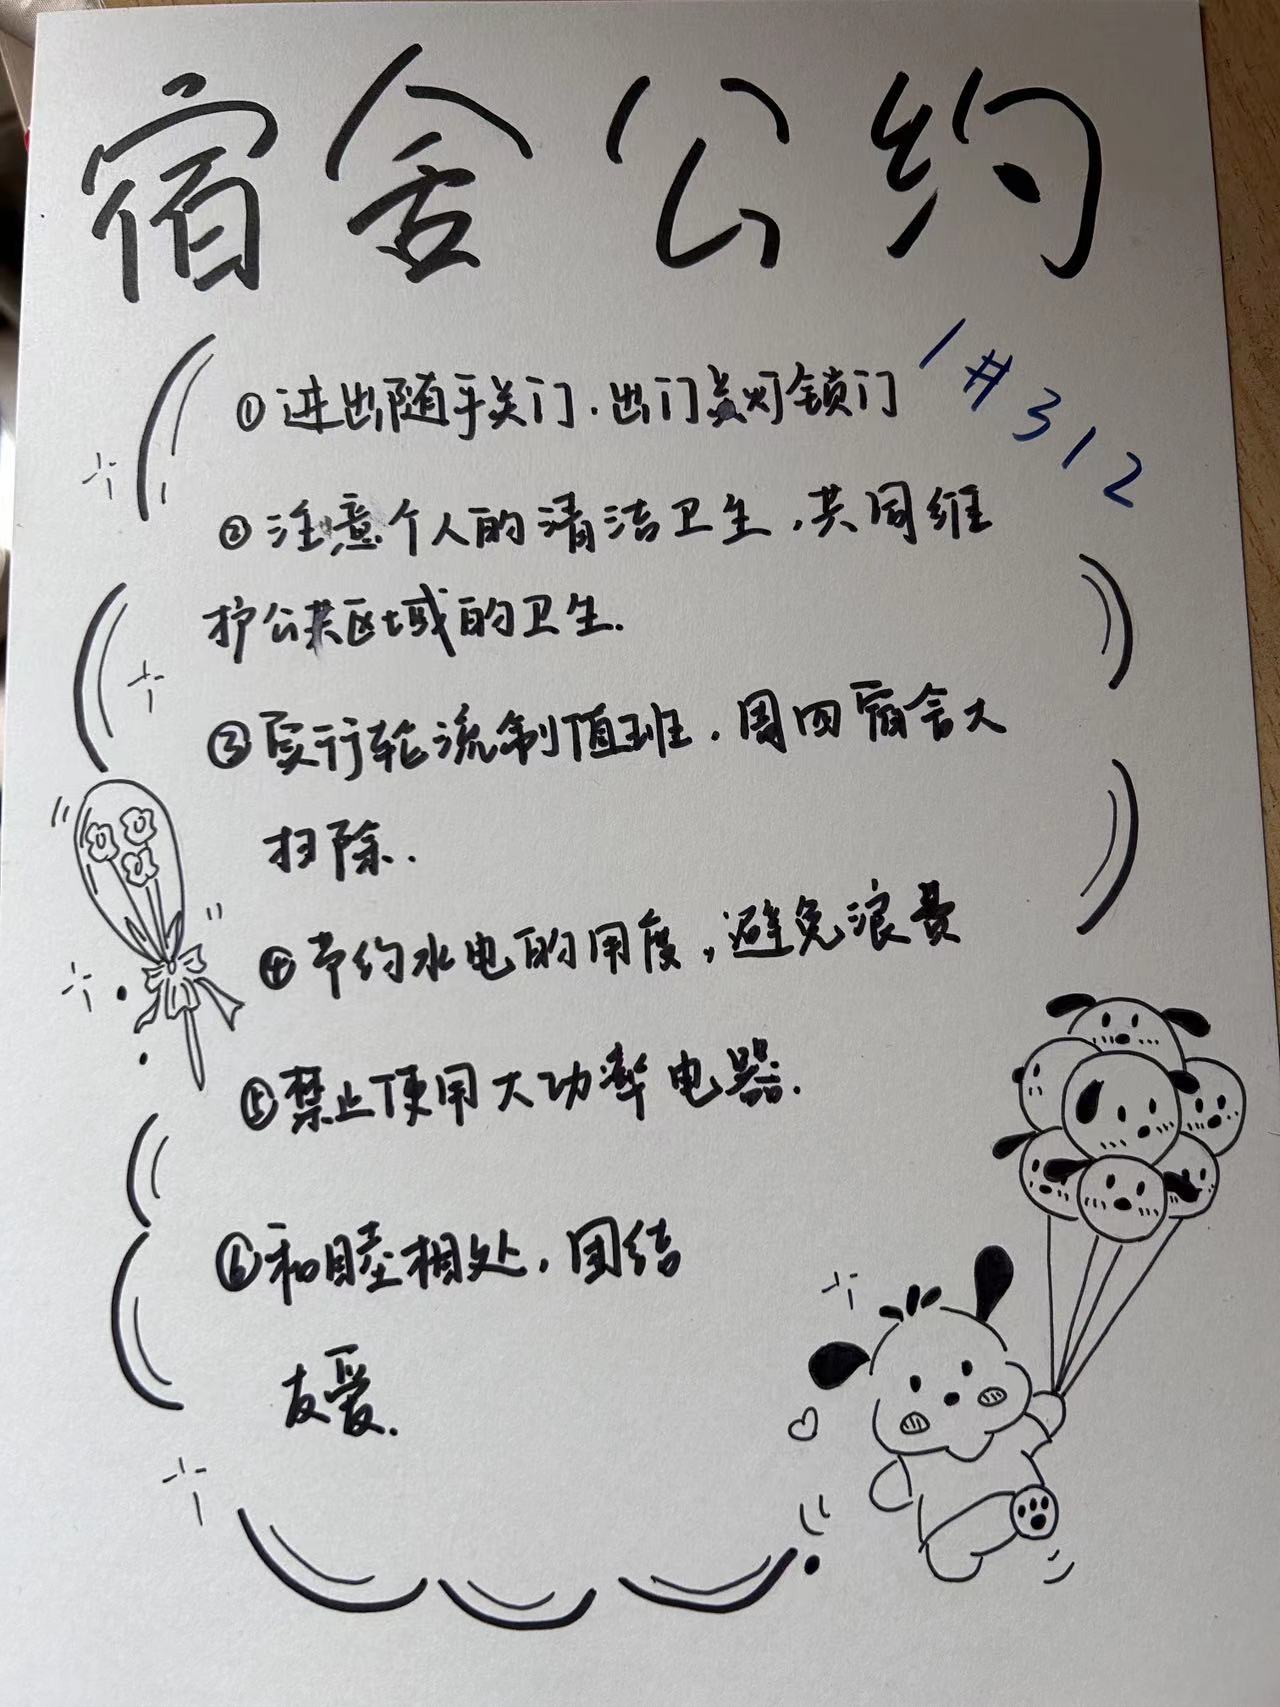 宿舍公约
①进出随手关门.出门关灯锁门
1#312
②注意个人的清洁卫生,共同维
护公共区域的卫生.
③实行轮流制值班.周四宿舍大
扫除.
④节约水电的用度,避免浪费
⑤禁止使用大功率电器.
⑥和睦相处,团结
友爱.